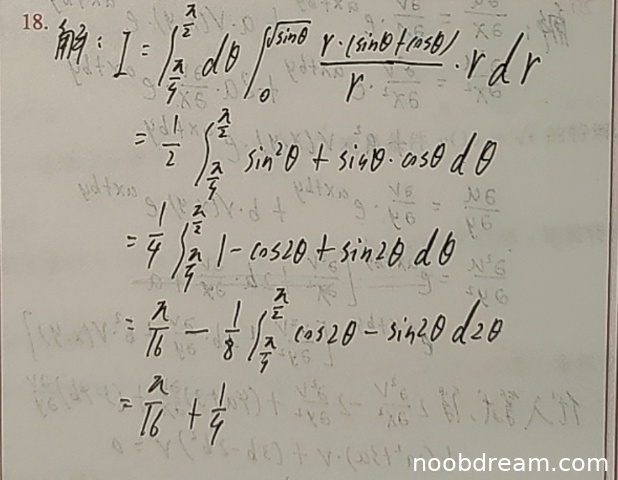 18.
解: I = ∫_{π/4}^{π/2} dθ ∫_0^{√sinθ} \frac{r·(sinθ+cosθ)}{r} · r dr
= \frac{1}{2} ∫_{π/4}^{π/2} sin²θ + sinθ·cosθ dθ
= \frac{1}{4} ∫_{π/4}^{π/2} 1 - cos2θ + sin2θ dθ
= \frac{π}{16} - \frac{1}{8} ∫_{π/4}^{π/2} cos2θ - sin2θ d2θ
= \frac{π}{16} + \frac{1}{4}
noobdream.com